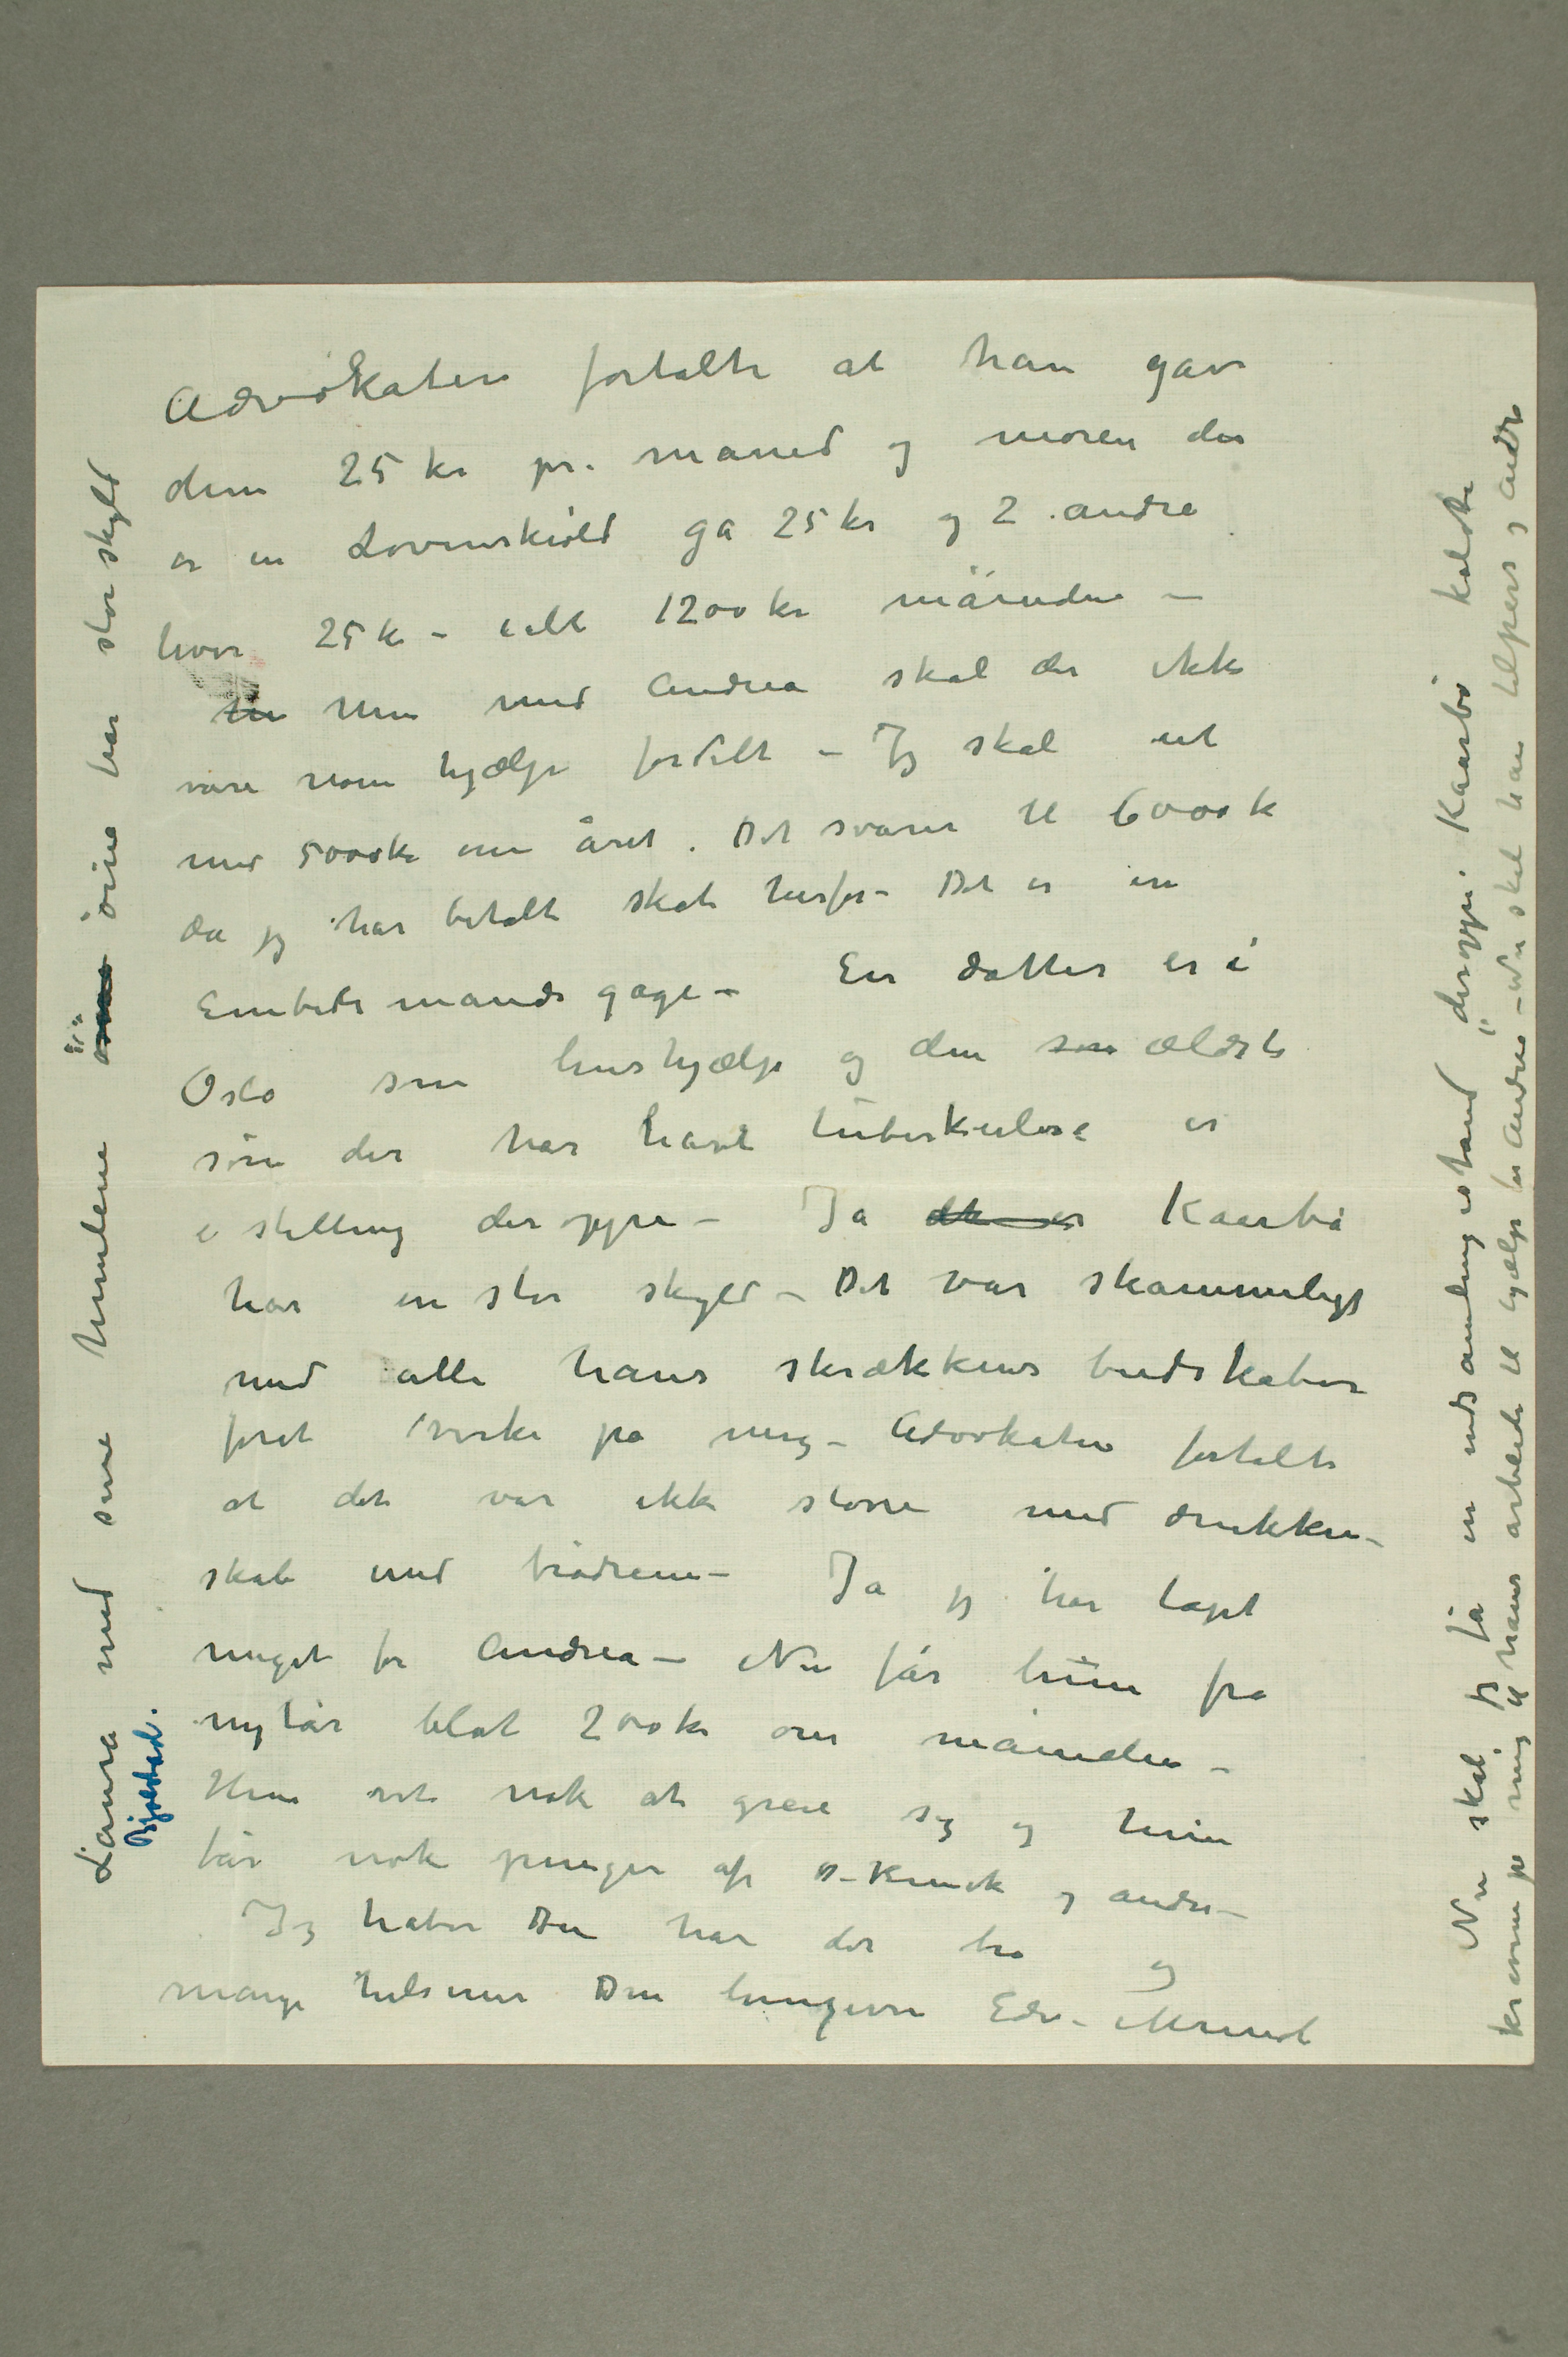 Advokaten fortalte at han gav
dem 25 kr pr. måned og moren der
er en Løvenskiold ga 25 kr og 2 andre
hver 25 kr – ialt 1200 kr måneden –
Men med Andrea skal der ikke
være noen hjælp fordelt – Jeg skal ut
med 5000 kr om året. Det svarer til 6000 k
da jeg har betalt skat herfor – Det er en
Embedsmands gage – En datter er i
Oslo som hushjælp og den søn ældste
søn der har havt tuberkulose er
i stilling deroppe – Ja det er Kaarbø
har en stor skyld – Det var skammeligt
med alle hans skrækkens budskaber
forat virke på meg – Advokaten fortalte
at det var ikke større med drukken-
skab med brødrene – Ja jeg har tapt
meget for Andrea – Nu får hun fra
nytår blot 200 kr om måneden –
Hun vet nok at greie seg og hun
får nok penger af S-Krnek og andre –
Jeg håber Du har det bra og
mange hilsener Din hengivne Edv. Munch
Laura med sine hundene øine har stor skyld
Bjølstad.
Nu skal jeg få en indsamling istand "deroppe" Kaarbø kaldte
kr område på mig til hans arbeide til hjælp for Andrea – Nu skal han hjelpes og andre